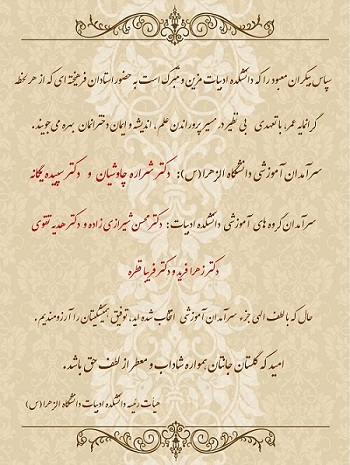 سپاس بیکران معبود را که دانشکده ادبیات مزین و متبرک است به حضور استادان فرهیخته ای که از هر لحظه
گرانمایه عمر، با تعهدی بی نظیر در مسیر پروراندن علم، اندیشه و ایمان دخترانمان بهره می جویند.
سرآمدان آموزشی دانشگاه الزهرا (س): دکتر شراره چاوشیان و دکتر سپیده یگانه
سرآمدان گروه های آموزشی دانشکده ادبیات: دکتر محسن شیرازی زاده و دکتر هدیه تقوی
دکتر زهرا فرید و دکتر فریبا قطره
حال که با لطف الهی جزء سرآمدان آموزشی انتخاب شده اید، توفیق همیشگیتان را آرزومندیم.
امید که گلستان جانتان همواره شاداب و معطر از لطف حق باشد.
هیأت رئیسه دانشکده ادبیات دانشگاه الزهرا (س)